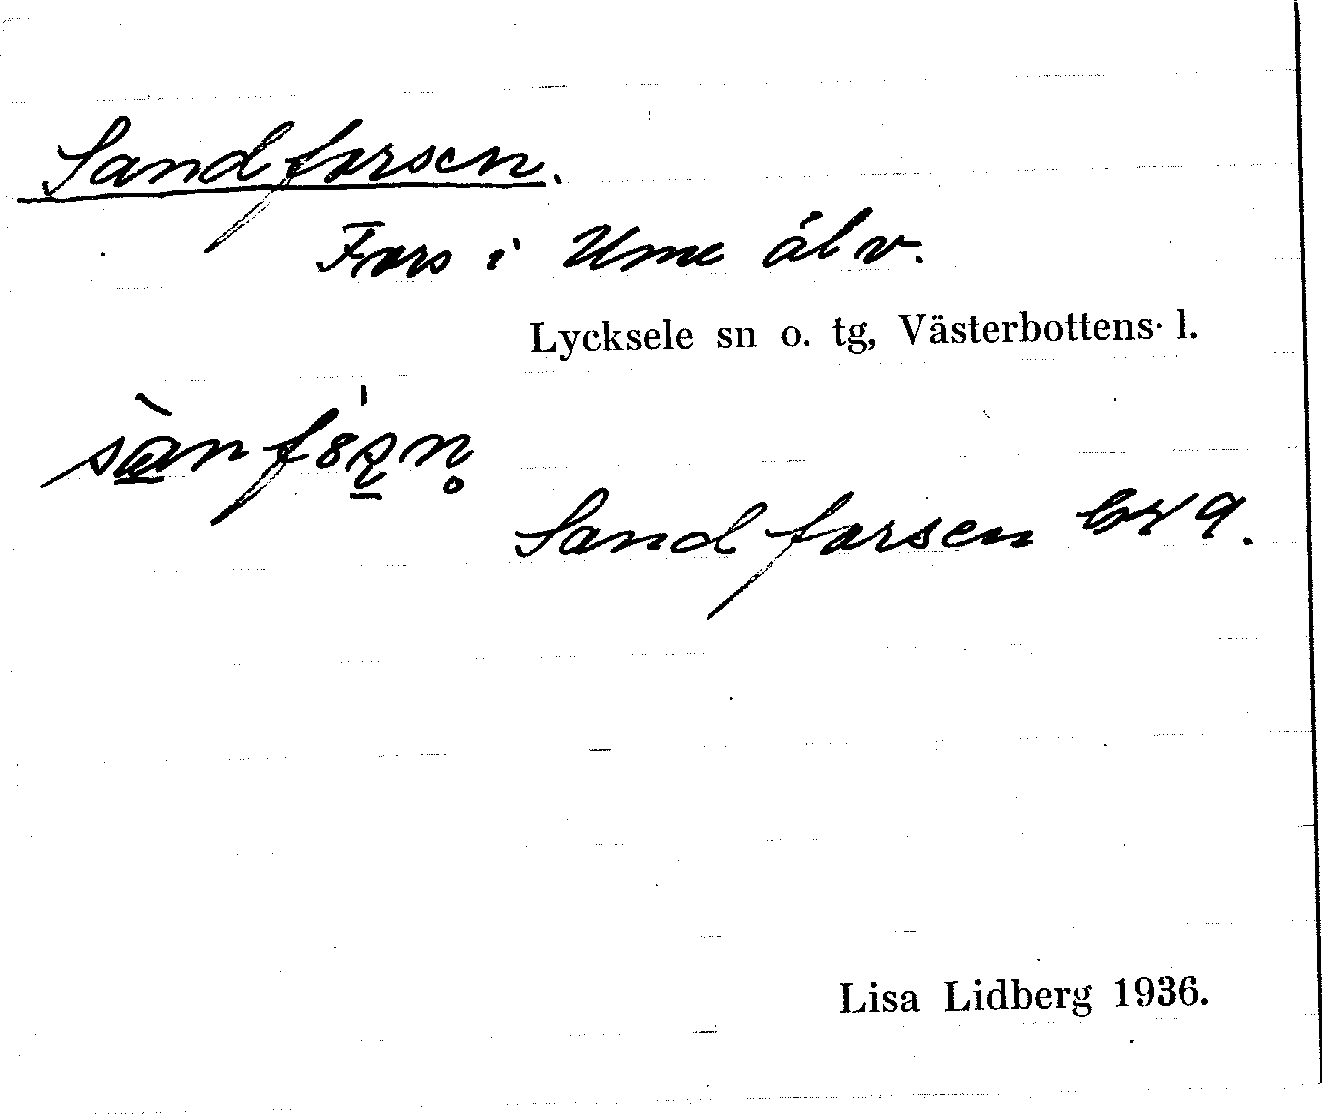 Sandforsen.
Fors i Ume älv.
Lycksele sn o. tg, Västerbottens l.
Sandforsen
Lisa Lidberg 1936.